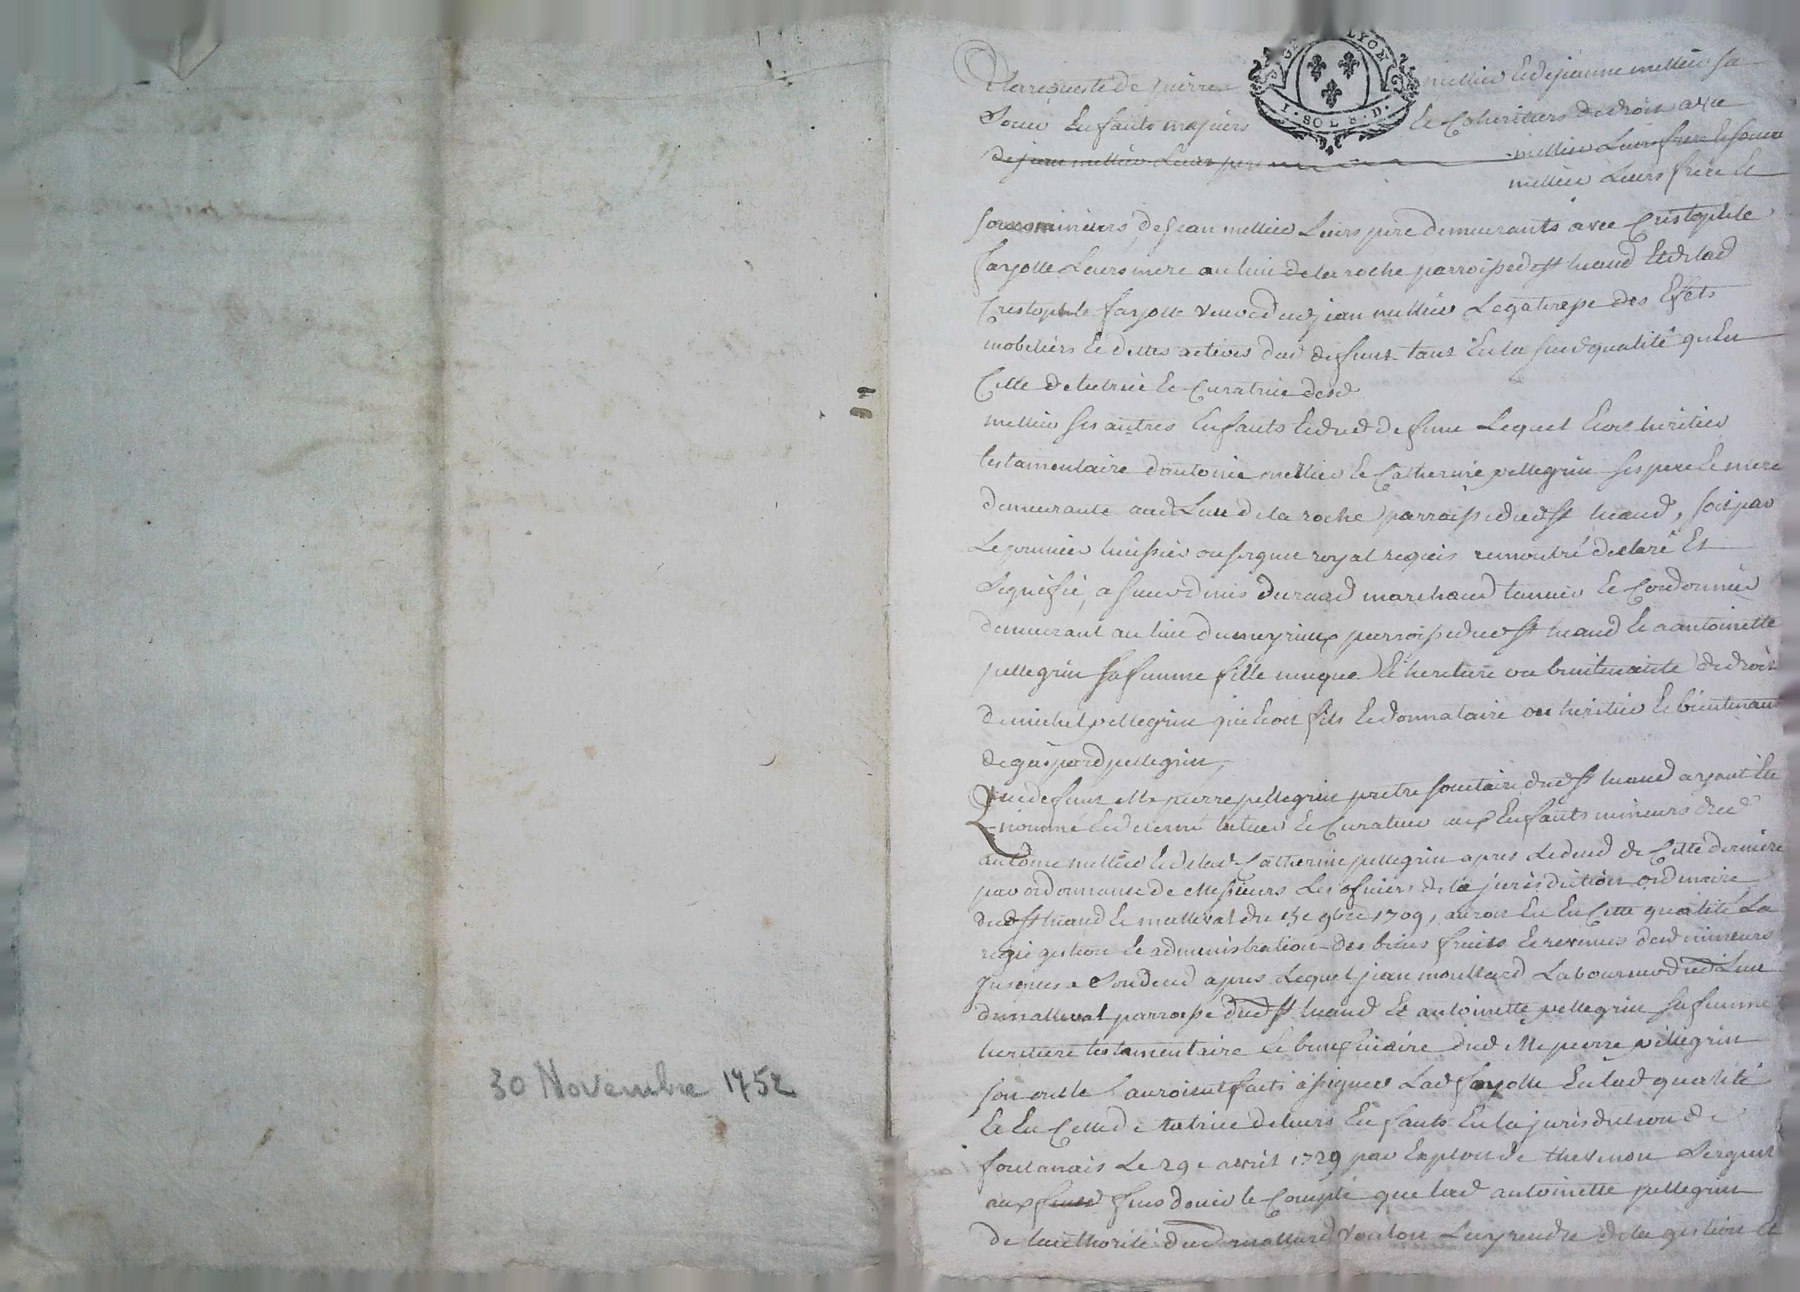 30 Novembre 1752
GEN LYON
I·SOLS·D·
A la requeste de pierre mellier et de jeanne mellier sa
Soeur Enfants majeurs et Coheritiers de droit avec
de jean mellier Leurs pere mellier Leurs frere et soeur
mellier Leurs frere Et
soeur mineurs de jean mellier Leurs pere demeurants avec Cristophle
fayolle Leurs mere au lieu de la roche parroisse de st huand Et de lad
Cristophle fayolle veuve dud jean mellier Legatresse des Efets
mobiliers Et dettes actives dud defunt tant En la susd qualité qu'En
Celle de tutrice Et Curatrice desd
mellier ses autres Enfants Et dud defunt Lequel Etoit héritier
testamentaire d'antoine mellier Et Catherine pellegrin ses pere Et mere
demeurante aud Lieu de la roche parroisse dud st huand, soit par
Le premier huissier ou sergent royal requis remontré declaré Et
Signifié, a sieur denis durand marchand tannier Et Cordonnier
demeurant au lieu du meyrieux parroisse dud st huand Et a antoinette
pellegrin sa femme fille unique Et heritiere ou bientenante de droit
de michel pellegrin qui Etoit fils Et donnataire ou heritier Et bientenant
de gaspard pellegrin,
Que defunt Mre pierre pellegrin pretre societaire dud st huand ayant Eté
nommé Et decerné tuteur Et Curateur aux Enfants mineurs dud
antoine mellier Et de lad Catherine pellegrin apres Le deced de Cette derniere
par ordonnance de Messieurs Les oficiers de la jurisdiction ordinaire
dud st huand Et malleval du 9bre 1709, auroit Eu En Cette qualité La
regie gestion Et administration des biens fruits Et revenus desd mineurs
jusques a Son deced apres Lequel jean moullard Laboureur dud Lieu
de malleval parroisse dud st huand Et antoinette pellegrin sa femme
heritiere testamentaire Et beneficiaire dud Mre pierre pellegrin
son oncle auroient faits assigner Lad fayolle En lad qualité
Et En Celle de tutrice de leurs Enfants En la jurisdiction de
fontanais Le 29e avril 1729 par Exploit de thevenon Sergent
aux fins d'ouir le Compte que lad antoinette pellegrin
de lauthorité dud moullard vouloit Luy rendre de la gestion Et